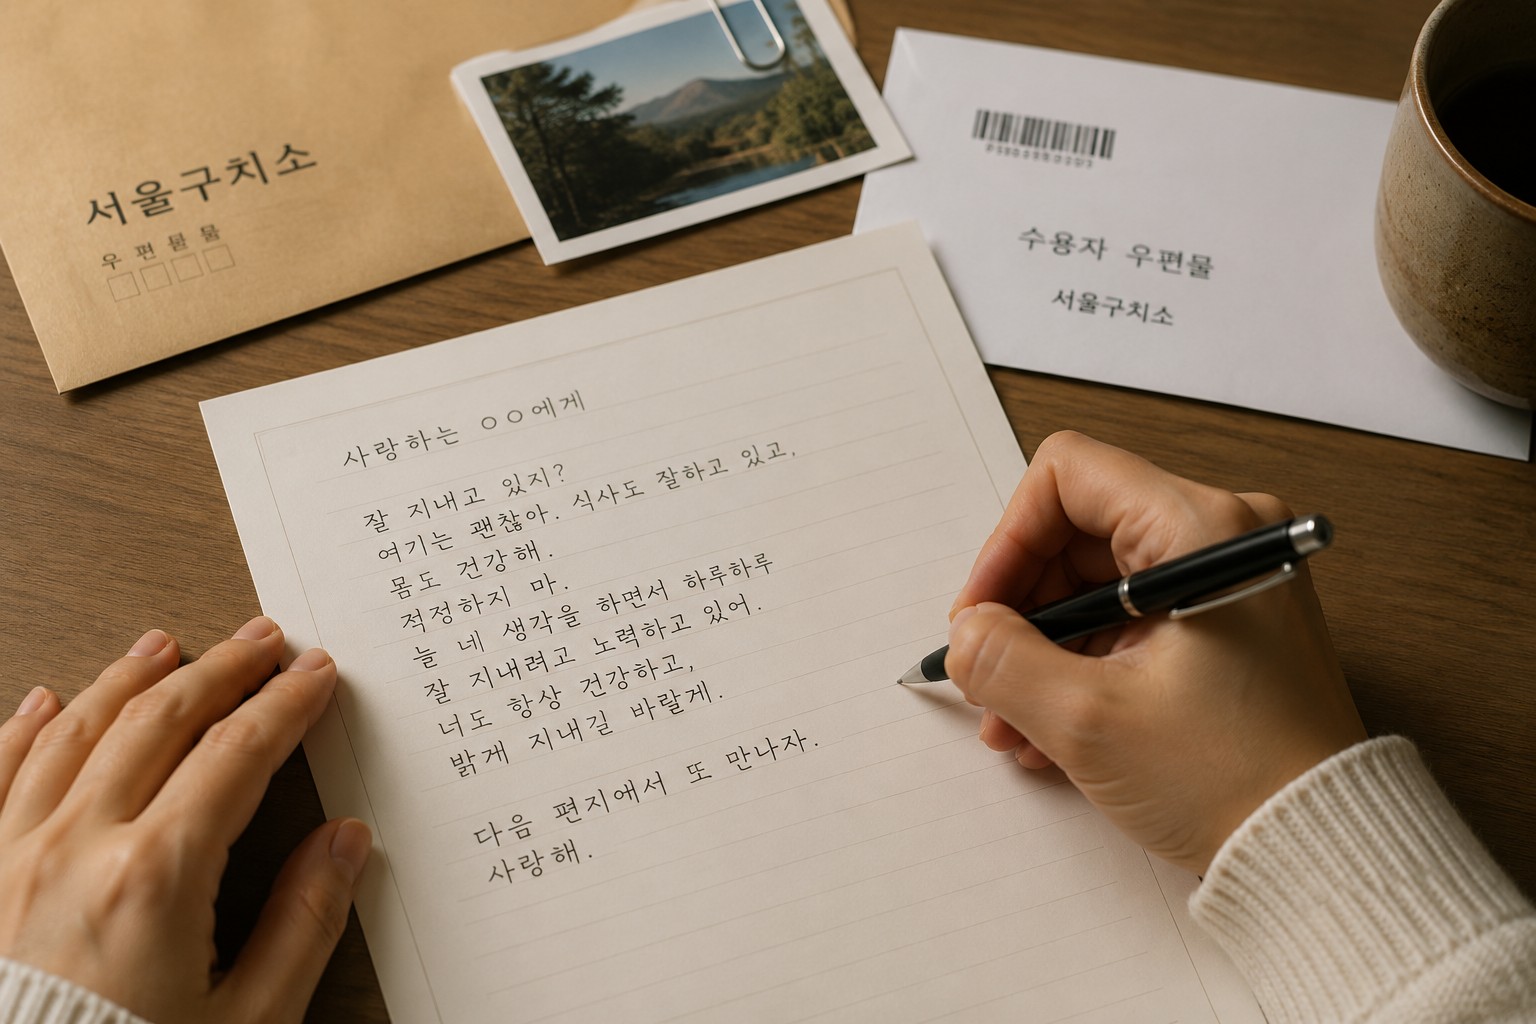 서울구치소
우편물
수용자 우편물
서울구치소
사랑하는 ㅇㅇ에게
잘 지내고 있지?
여기는 괜찮아. 식사도 잘하고 있고,
몸도 건강해.
적정하지 마.
늘 네 생각을 하면서 하루하루
잘 지내려고 노력하고 있어.
너도 항상 건강하고,
밝게 지내길 바랄게.
다음 편지에서 또 만나자.
사랑해.